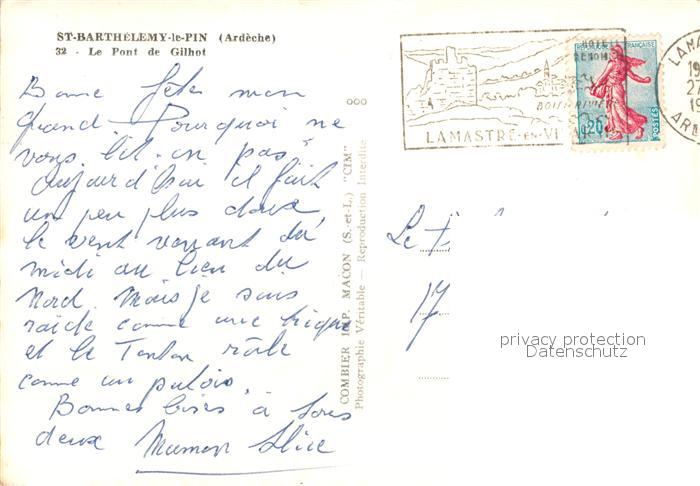 ST-BARTHÉLEMY-le-PIN (Ardèche)
32 - Le Pont de Gilhot
Bonne fête mon
grand. Pourquoi ne
vous lit-on pas
Aujourd'hui il fait
un peu plus doux,
le vent venant du
midi au lieu du
Nord. Mais je suis
raide comme une trique
et le Tonton râle
comme un putois.
Bonnes bises à tous
deux Maman
COMBIER IMP. MACON (S.-et-L.) "CIM"
Photographie Véritable — Reproduction Interdite
LAMASTRE-en-VI
REPUBLIQUE FRANÇAISE
0,20
POSTES
LAMA
19
27
19
AR
Le
17
privacy protection
Datenschutz